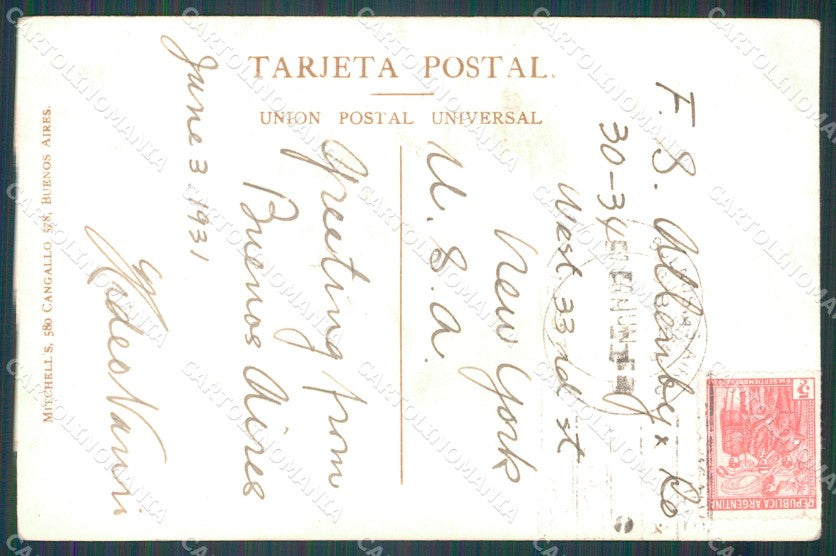 TARJETA POSTAL.
UNION POSTAL UNIVERSAL
June 3. 1931
Greeting from
Buenos Aires
F. S. & Co
30-34
West 33rd st
New York
U. S. A.
MITCHELL'S, 580 CANGALLO 578, BUENOS AIRES.
5c
REPUBLICA ARGENTINA
CARTOLINOMANIA